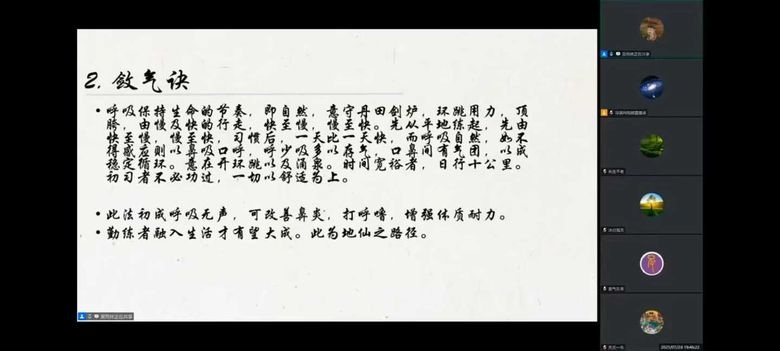 2. 敛气诀
• 呼吸保持生命的节奏，即自然，意守丹田剑炉，环跳用力，顶
胯，由慢及快的行走，快至慢，慢至快。先从平地练起，先由
快至慢，慢至快，习惯后，一天比一天快，而呼吸自然，如不
得感应则以鼻吸口呼，呼少吸多以存气，口鼻间有气团，以成
稳定循环。意在开环跳以及涌泉。时间宽裕者，日行十公里。
初习者不必功过，一切以舒适为上。
• 此法初成呼吸无声，可改善鼻炎，打呼噜，增强体质耐力。
• 勤练者融入生活才有望大成。此为地仙之路径。
正在共享
正在共享
2025/07/28 19:46:22